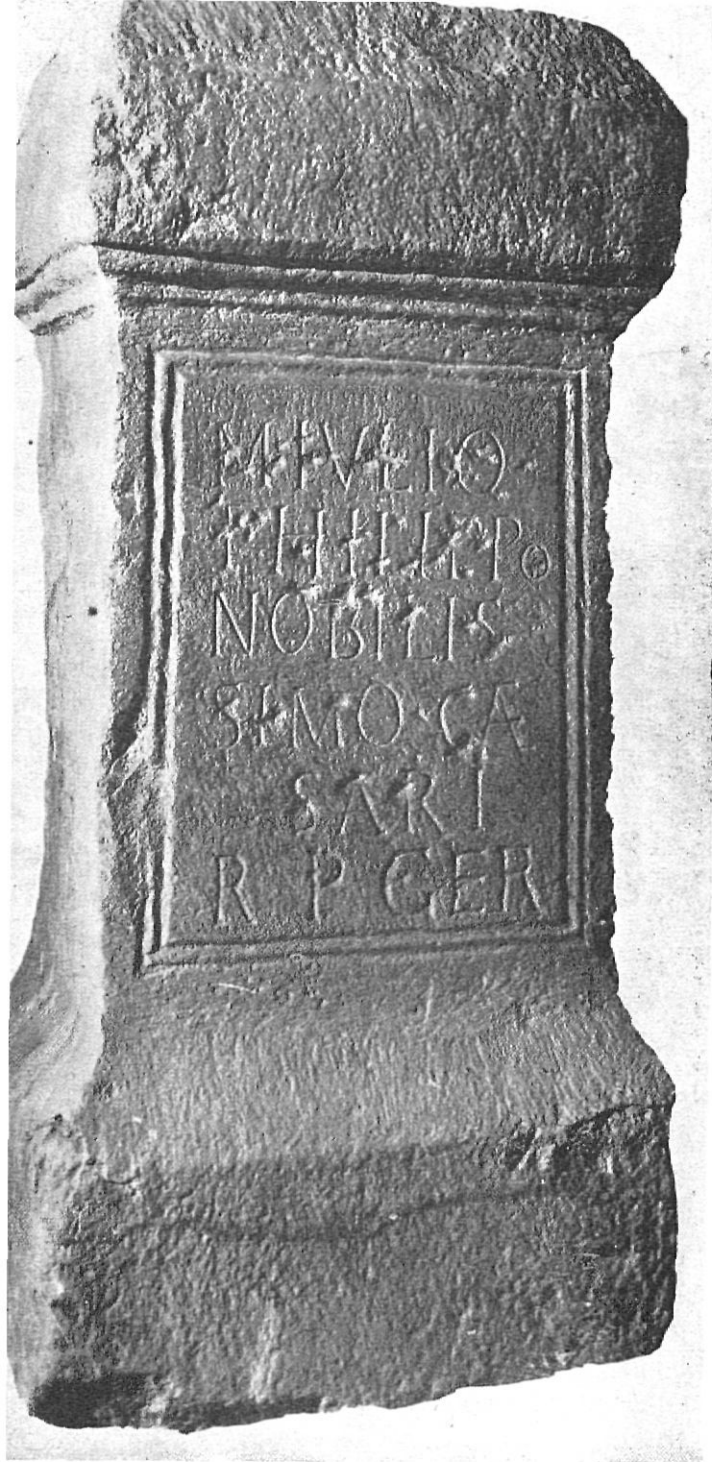 M IVLIO
PHILIPPO
NOBILIS
SIMO CAE
SARI
R P GER